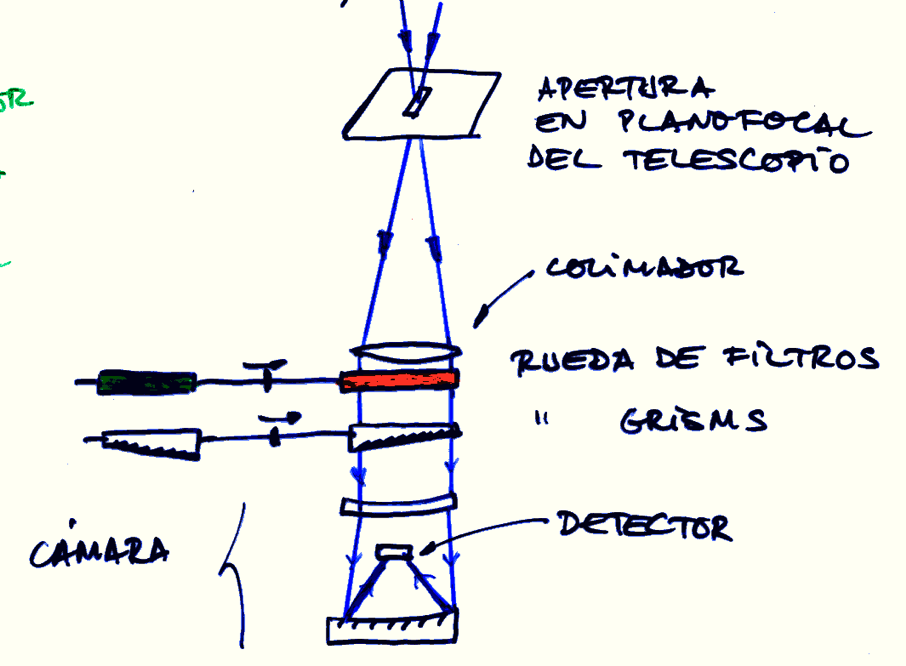 APERTURA
EN PLANOFOCAL
DEL TELESCOPIO
COLIMADOR
RUEDA DE FILTROS
" GRISMS
DETECTOR
CÁMARA